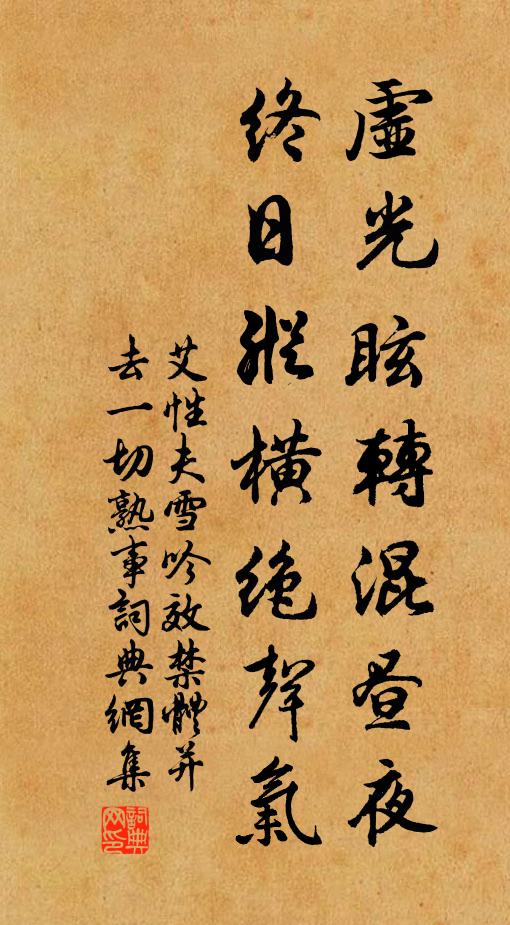 虛光眩轉混昼夜
終日縱橫絶聲氣
艾性夫雪吟效禁體并
去一切熟事詞典網集
詞典网印